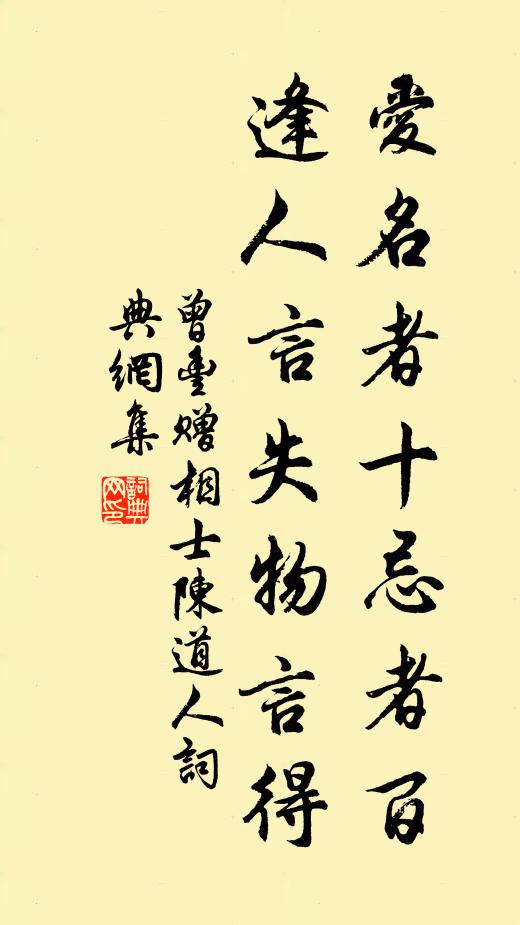 愛名者十忌者百
逢人言失物言得
曾豐贈相士陳道人詞
典網集
詞典网印